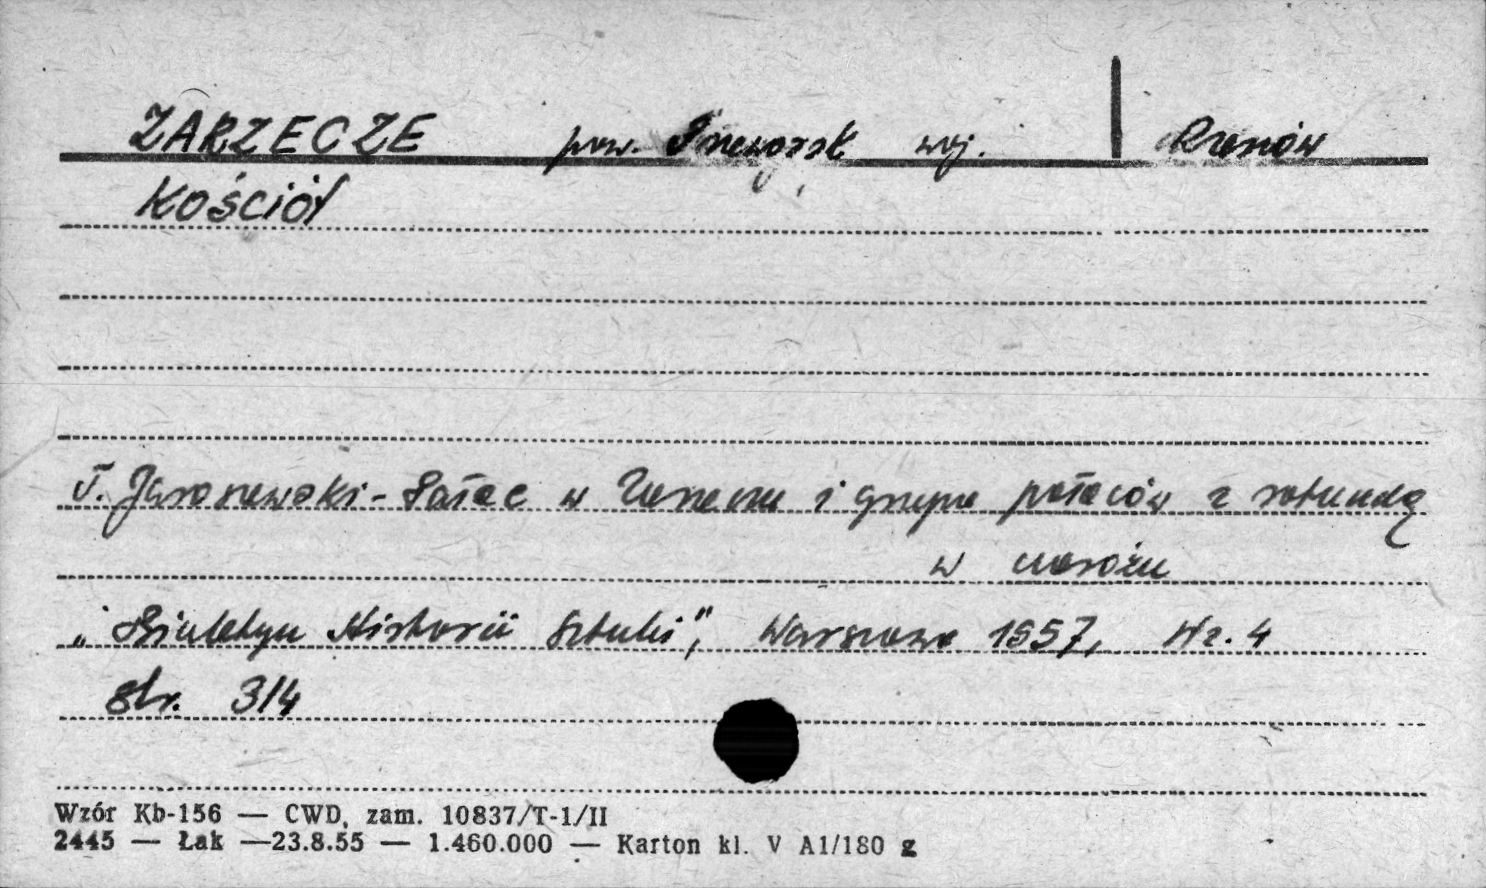 ZARZECZE pow. Przeworsk woj. Rzeszów
KOŚCIÓŁ
T. Jaroszewski - Pałac w i grupa pałaców z rotundą
w narożu
„Biuletyn Historii Sztuki”, Warszawa 1957, Nr. 4
str. 314
Wzór Kb-156 — CWD, zam. 10837/T-1/II
2445 — Łak —23.8.55 — 1.460.000 — Karton kl. V A1/180 g